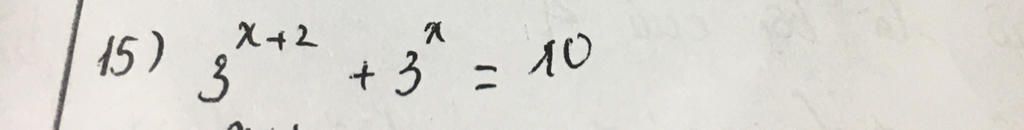 15) 3^{x+2} + 3^x = 10